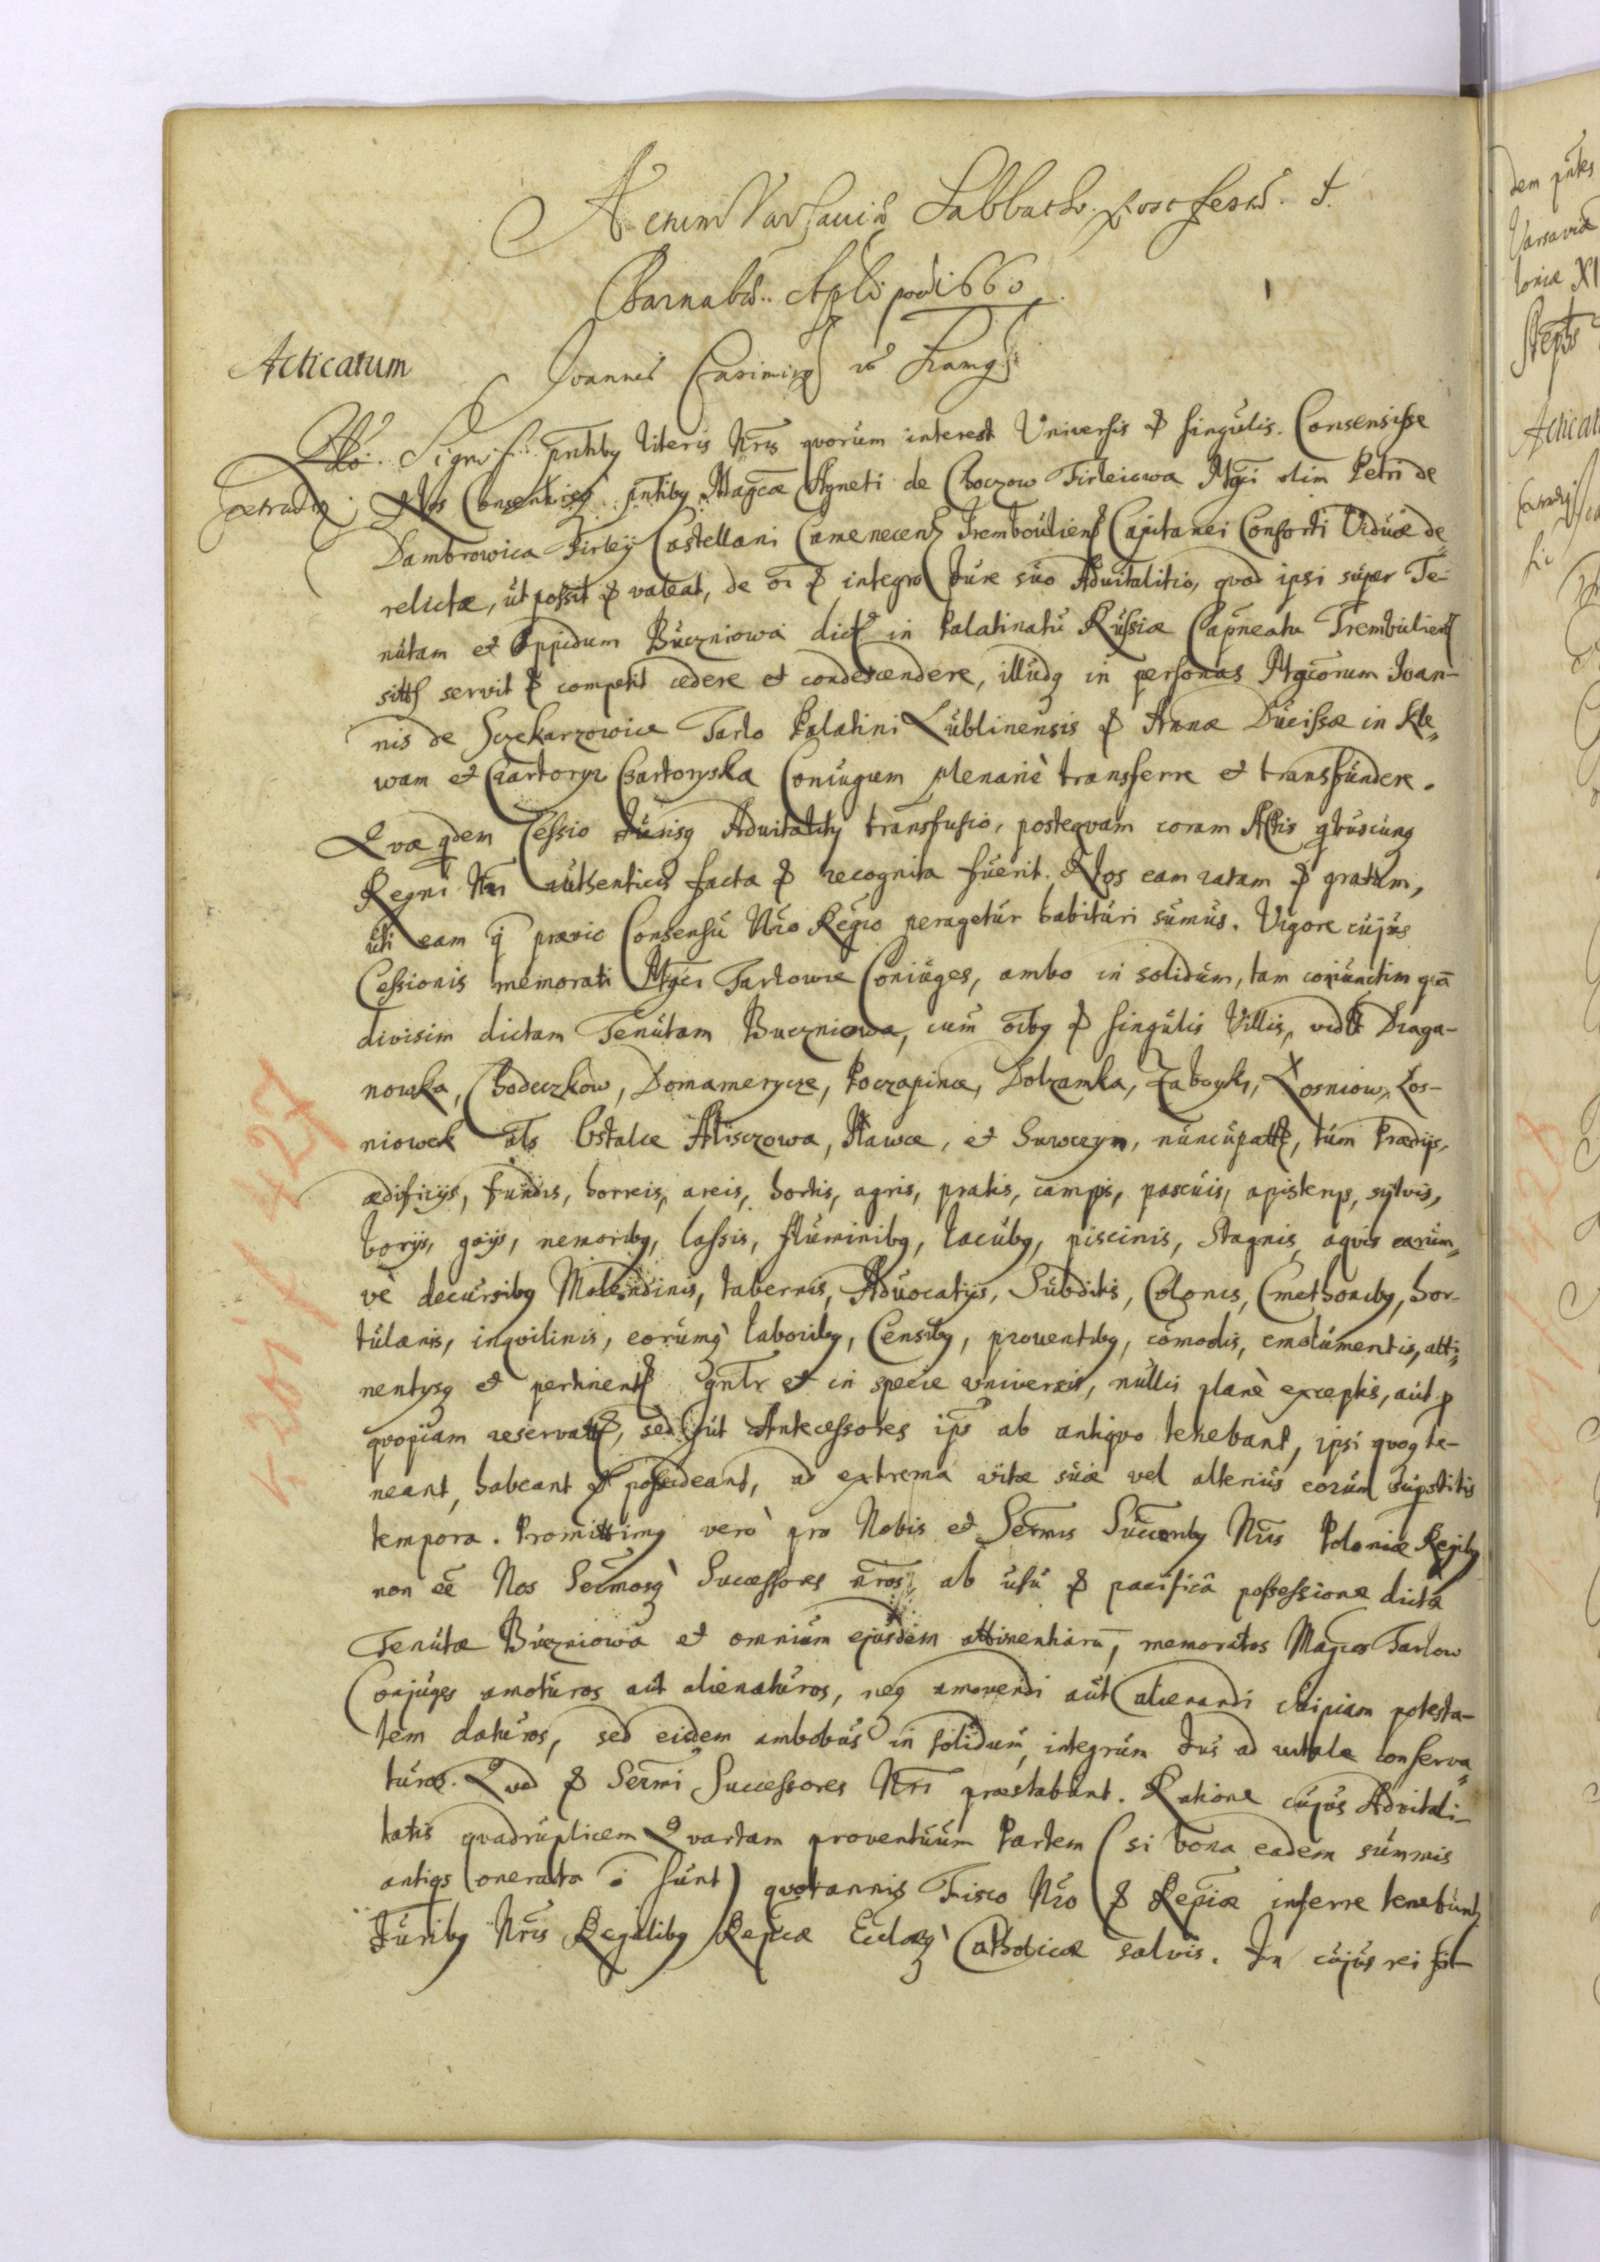 Actum Varsaviæ Sabbatho post festu. S.
Barnabæ. Apli 1660
Acticatum
Joannes Casimirus
Signif. pntibus literis Nris quorum interest Universis & singulis. Consensisse
extradit Nos Consentireq pntibus Magcæ Agneti de Choczow Firleiowa Mgci olim Petri de
Dambrowica Firleÿ Castellani Camenecens Trembouliens Capitanei Consorti Viduæ de-
relictæ, ut possit & valeat, de oi & integro Jure suo Advitalitio, quod ipsi super Te-
nutam et Oppidum Buczniowa dict in Palatinatu Russiæ Capneatu Trembuliens
sitts servit & competit cedere et condescendere, illudq in personas Mgcorum Joan-
nis de Sczekarzowice Tarlo Palatini Lublinensis & Annæ Ducissæ in Kle-
wam et Czartorys Czartoryska Coniugum plenariè transferre et transfundere.
Quæ qdem Cessio Jurisq Advitalitq transfusio, postequam coram Actis qbuscunq
Regni Nri authenticis facta & recognita fuerit. Nos eam ratam & gratam,
uti eam q prævio Consensu Nro Regio peragetur habituri sumus. Vigore cujus
Cessionis memorati Mgci Tarlowie Coniuges, ambo in solidum, tam coniunctim qua
divisim dictam Tenutam Buczniowa, cum oibq & singulis Villis, vidlt Draga-
nowka, Chodeczkow, Domamerycze, Poczapince, Dolzamka, Zaboyki, Łosniow, Łos-
niowek als Ostalce Mliszowa, Nawce, et Suroczyn, nuncupatts, tum Prædijs,
ædificijs, fundis, horreis, areis, hortis, agris, pratis, campis, pascuis, apisterijs, sylvis,
borijs, gaijs, nemoribq, lassis, fluminibq, lacubq, piscinis, stagnis, aqvis earum-
vè decursibq Molendinis, tabernis, Advocatijs, Subditis, Colonis, Cmethonibq, hor-
tulanis, inquilinis, eorumq laboribq, Censibq, proventibq, comodis, emolumentis, atti-
nentijsq et pertinents gnlr et in specie universis, nullis planè exceptis, aut p
quopiam reservatts, sed put Antecessores ips ab antiquo tenebant, ipsi quoq te-
neant, habeant & possideant, ad extrema vitæ suæ vel alterius eorum supstitis
tempora. Promittimq verò pro Nobis et Sermis Succorib Nris Poloniæ Regibq
non ee Nos Sermosq Successores nros, ab usu & pacifica possessione dictæ
Tenutæ Buczniowa et omnium ejusdem attinentiaru, memoratos Magcos Tarlow
Conjuges amoturos aut alienaturos, neq amovendi aut alienandi cuipiam potesta-
tem daturos, sed eisdem ambobus in solidum, integrum Jus ad vitale conserva-
turos. Quod & Sermi Successores Nri præstabunt. Ratione cujus Advitali-
tatis quadruplicem Quartam proventuum Partem (si bona eadem summis
antiqs onerata sunt) quotannis Fisco Nro & Reipiæ inferre tenebunt
Juribq Nris Regalibq Reipcæ Ecclæq Catholicæ salvis. In cujus rei fid-